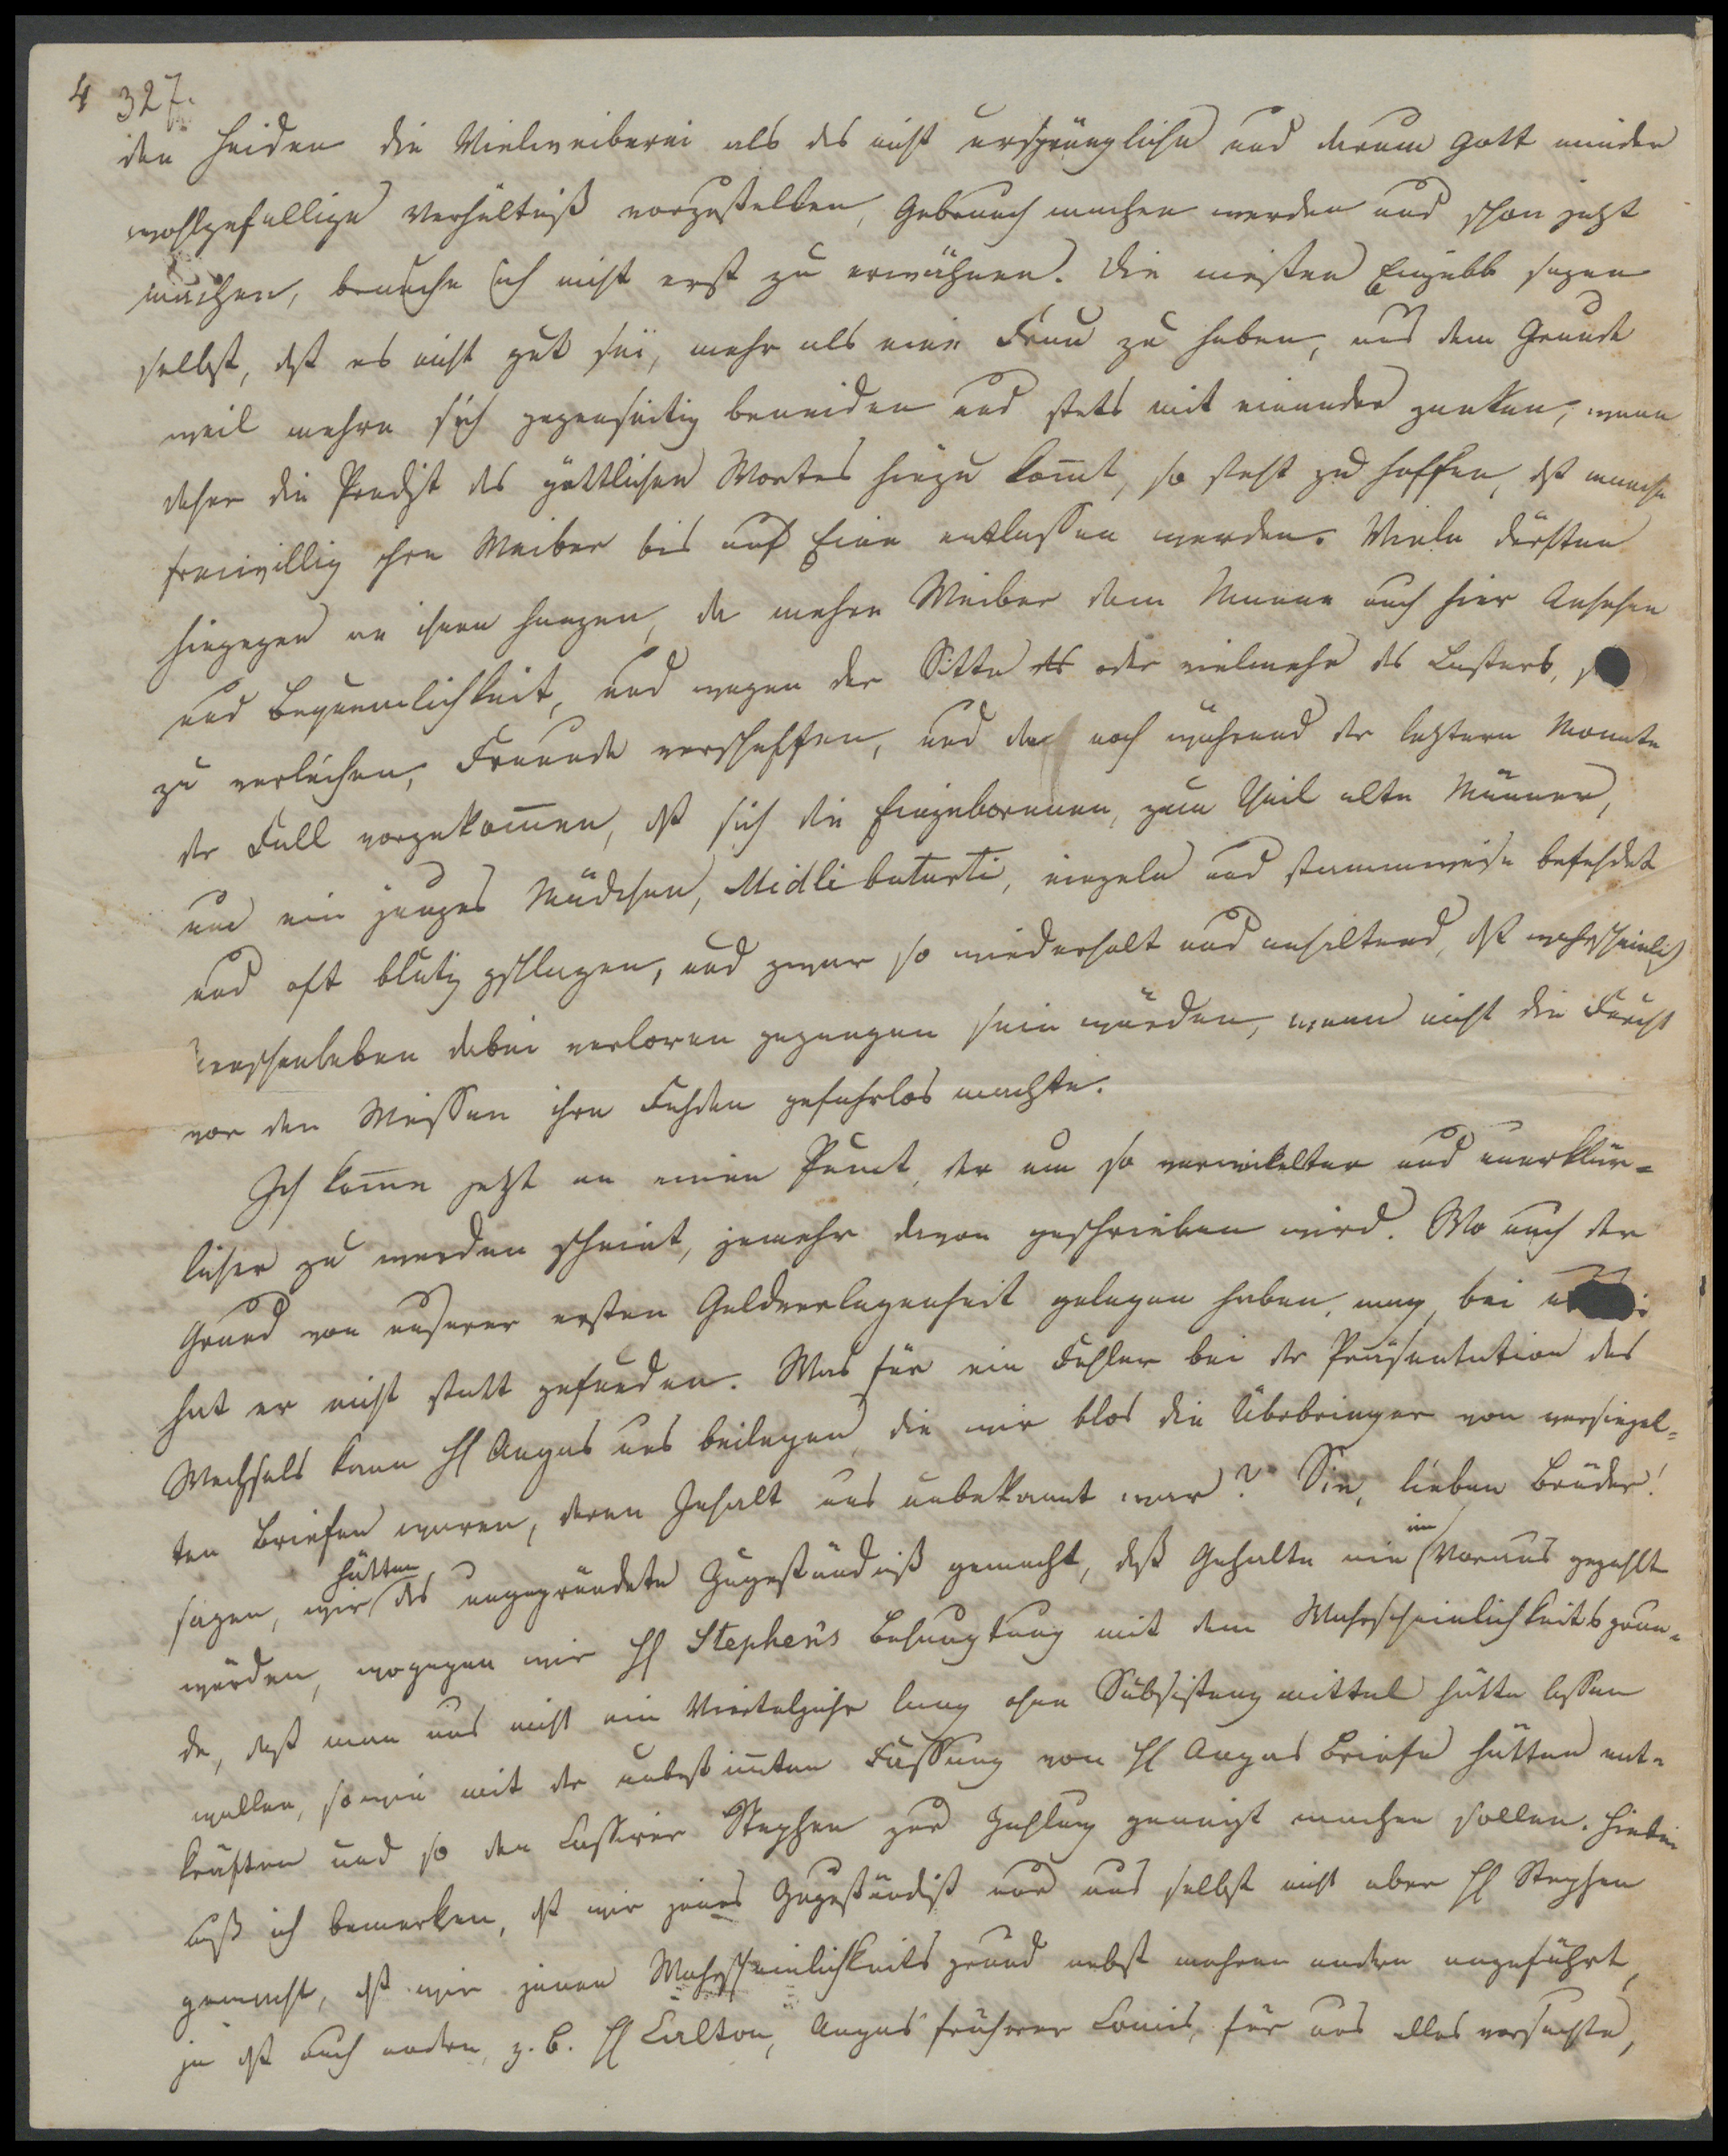 4 327.
den Heiden die Vielweiberei als das nicht ursprüngliche und darum Gott minder
wohlgefällige Verhältniß vorzustellen, Gebrauch machen werden und schon jetzt
machen, brauche ich nicht erst zu erwähnen. Die meisten Eingebb sagen
selbst, dß es nicht gut sei, mehr als eine Frau zu haben, aus dem Grunde
weil mehre sich gegenseitig beneiden und stets mit einander zanken; wenn
daher die Predigt des göttlichen Wortes hinzu kom̄t, so steht zu hoffen, dß manche
freiwillig ihre Weiber bis auf Eine entlassen werden. Viele dürften
hingegen an ihnen hangen, da mehre Weiber dem Manne auch hier Ansehen
und Bequemlichkeit, und wegen der Sitte des oder vielmehr des Lasters, s
zu verleihen, Freunde verschaffen, und da noch während der letztern Monate
der Fall vorgekom̄en, dß sich die Eingebornen, zum Theil alte Männer,
um ein junges Mädchen, Midlibaturti, einzeln und stammweise befehdet
und oft blutig gschlagen, und zwar so wiederholt und anhaltend, dß wahrscheinlich
Menschenleben dabei verloren gegangen sein würden, wenn nicht die Furcht
vor den Weissen ihre Fehden gefahrlos machte.
Ich kom̄e jetzt an einen Punct, der um so verwickelter und unerklär-
licher zu werden scheint, jemehr davon geschrieben wird. Wo auch der
Grund von unserer ersten Geldverlegenheit gelegen haben mag, bei
hat er nicht statt gefunden. Was für ein Fehler bei der Präsentation des
Wechsels kann H Angas uns beilegen, die wir blos die Überbringer von versiegel-
ten Briefen waren, deren Inhalt uns unbekannt war? Sie, lieben Brüder!
sagen, wir hätten das ungegründete Zugeständniß gemacht, daß Gehalte nie im Voraus gezahlt
würden, wogegen wir H Stephen's Behauptung mit dem Wahrscheinlichkeitsgrun-
de, daß man uns nicht ein Vierteljahr lang ohne Subsistenzmittel hätte lassen
wollen, sowie mit der unbestim̄ten Fassung von H Angas Briefe hätten ent-
kräften und so den Cassirer Stephen zur Zahlung geneigt machen sollen. Hiebei
muß ich bemerken, dß wir jenes Zugeständniß nur uns selbst nicht aber H Stephen
gemacht, dß wir jenen Wahrscheinlichkeitsgrund nebst mehren andern angeführt,
ja dß auch andre, z. B. H Calton, Angas' früherer Com̄is, für uns alles versuchte,